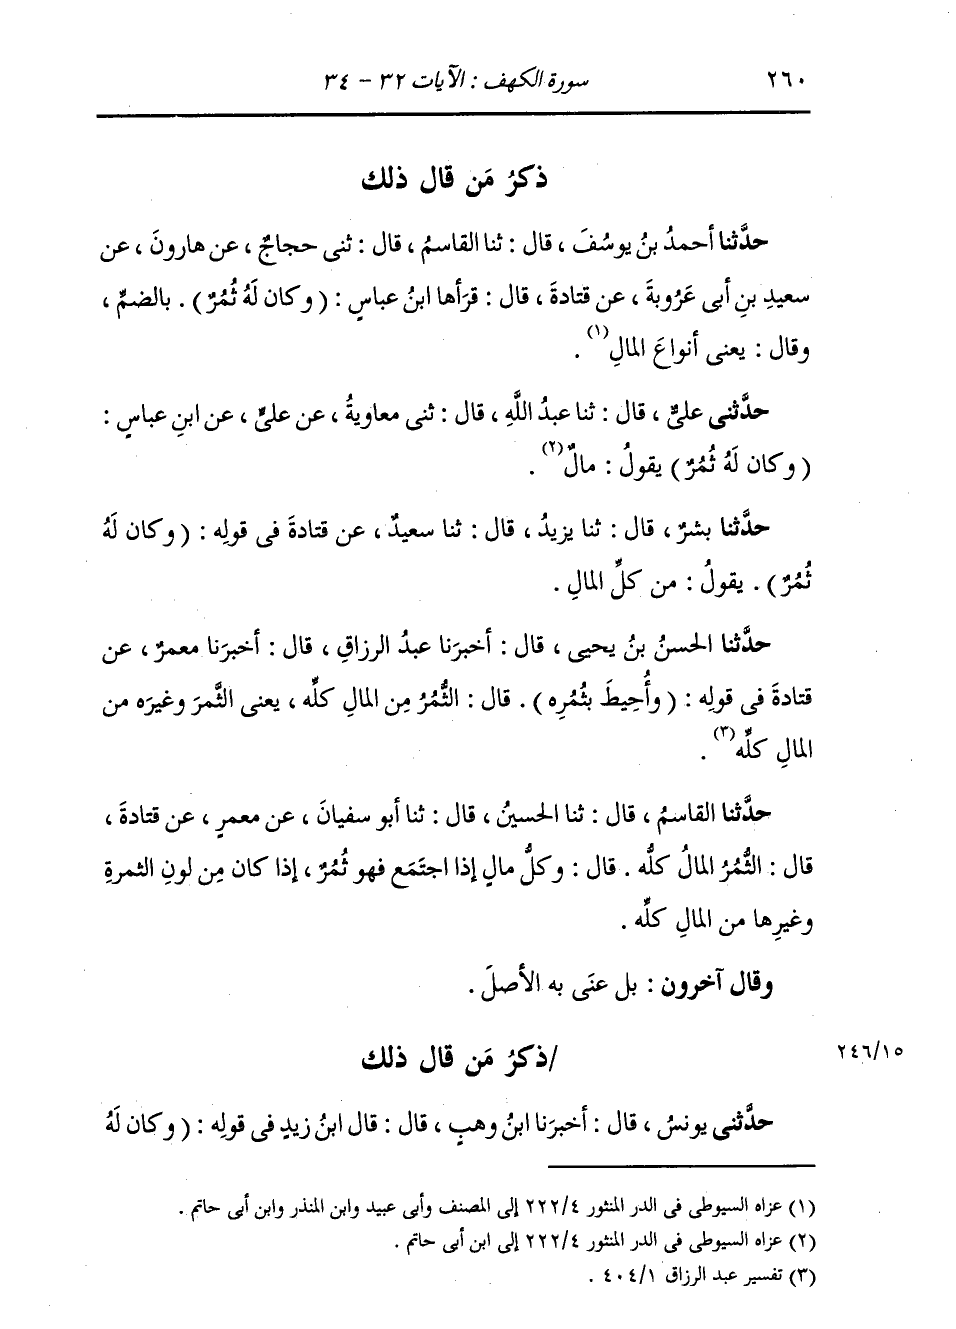 ٢٦٠ سورة الكهف : الآيات ٣٢ - ٣٤
ذكرُ مَن قال ذلك
حدَّثنا أحمدُ بنُ يوسُفَ ، قال : ثنا القاسمُ ، قال : ثنى حجاجٌ ، عن هارونَ ، عن
سعيدِ بنِ أبى عَرُوبةَ ، عن قتادةَ ، قال : قرَأها ابنُ عباسٍ : ( وكان لَهُ ثُمُرٌ ) . بالضمِّ ،
وقال : يعنى أنواعَ المالِ(١) .
حدَّثنى علىٌّ ، قال : ثنا عبدُ اللَّهِ ، قال : ثنى معاويةُ ، عن علىٍّ ، عن ابنِ عباسٍ :
( وكان لَهُ ثُمُرٌ ) يقولُ : مالٌ(٢) .
حدَّثنا بشرٌ ، قال : ثنا يزيدُ ، قال : ثنا سعيدٌ ، عن قتادةَ فى قولِه : ( وكان لَهُ
ثُمُرٌ ) . يقولُ : من كلِّ المالِ .
حدَّثنا الحسنُ بنُ يحيى ، قال : أخبرَنا عبدُ الرزاقِ ، قال : أخبرَنا معمرٌ ، عن
قتادةَ فى قولِه : ( وأُحِيطَ بثُمُرِه ) . قال : الثُّمُرُ مِن المالِ كلِّه ، يعنى الثَّمرَ وغيرَه من
المالِ كلِّه(٣) .
حدَّثنا القاسمُ ، قال : ثنا الحسينُ ، قال : ثنا أبو سفيانَ ، عن معمرٍ ، عن قتادةَ ،
قال : الثُّمُرُ المالُ كلُّه . قال : وكلُّ مالٍ إذا اجتَمَع فهو ثُمُرٌ ، إذا كان مِن لونِ الثمرةِ
وغيرِها من المالِ كلِّه .
وقال آخرون : بل عنَى به الأصلَ .
/ذكرُ مَن قال ذلك ٢٤٦/١٥
حدَّثنى يونسُ ، قال : أخبرَنا ابنُ وهبٍ ، قال : قال ابنُ زيدٍ فى قولِه : ( وكان لَهُ
(١) عزاه السيوطى فى الدر المنثور ٢٢٢/٤ إلى المصنف وأبى عبيد وابن المنذر وابن أبى حاتم .
(٢) عزاه السيوطى فى الدر المنثور ٢٢٢/٤ إلى ابن أبى حاتم .
(٣) تفسير عبد الرزاق ٤٠٤/١ .